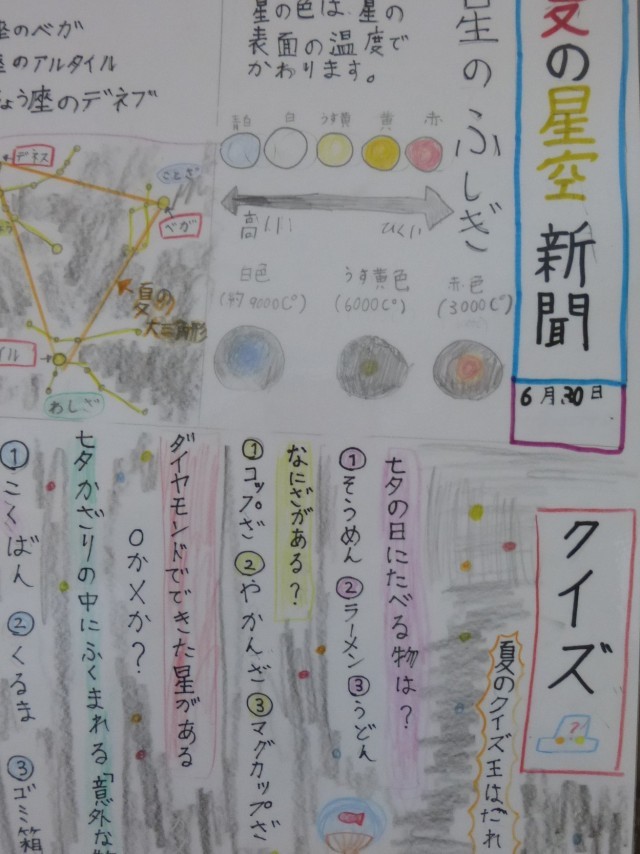 夏の星空新聞
6月30日
星のふしぎ
星の色は、星の
表面の温度で
かわります。
青白 白 うす黄 黄 赤
高い ひくい
白色 うす黄色 赤色
(約9000C°) (6000C°) (3000C°)
座のベガ
座のアルタイル
ちょう座のデネブ
デネブ
ことざ
ベガ
夏の
大三角形
イル
わしざ
クイズ
?
夏のクイズ王はだれ
七夕の日にたべる物は?
①そうめん ②ラーメン ③うどん
なにざがある?
①コップざ ②やかんざ ③マグカップざ
ダイヤモンドでできた星がある
〇か×か?
七夕かざりの中にふくまれる「意外な
①こくばん ②くるま ③ゴミ箱